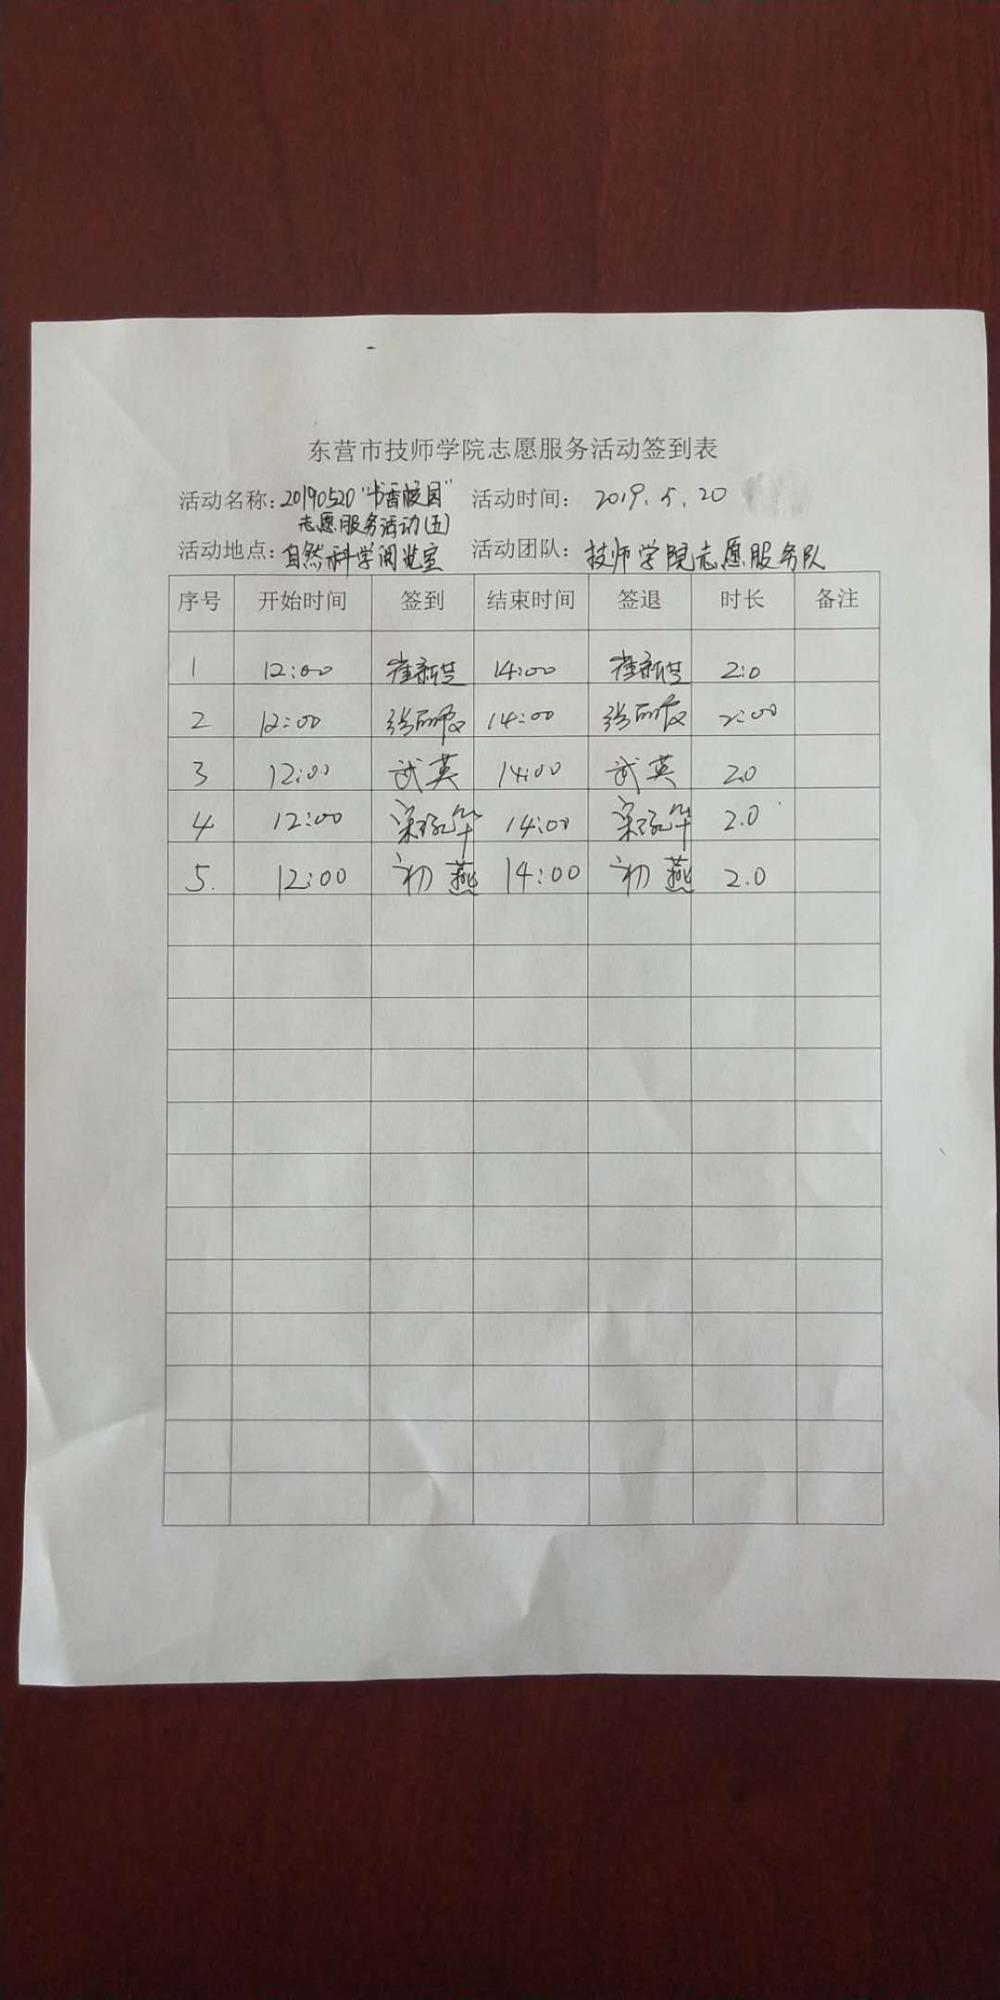 东营市技师学院志愿服务活动签到表
活动名称：20190520“书香校园” 活动时间： 2019.5.20
志愿服务活动(五)
活动地点：自然科学阅览室 活动团队：技师学院志愿服务队
序号 开始时间 签到 结束时间 签退 时长 备注
1 12:00 崔新芝 14:00 崔新芝 2.0
2 12:00 张丽霞 14:00 张丽霞 2:00
3 12:00 武英 14:00 武英 2.0
4 12:00 宋 华 14:00 宋 华 2.0
5. 12:00 初燕 14:00 初燕 2.0